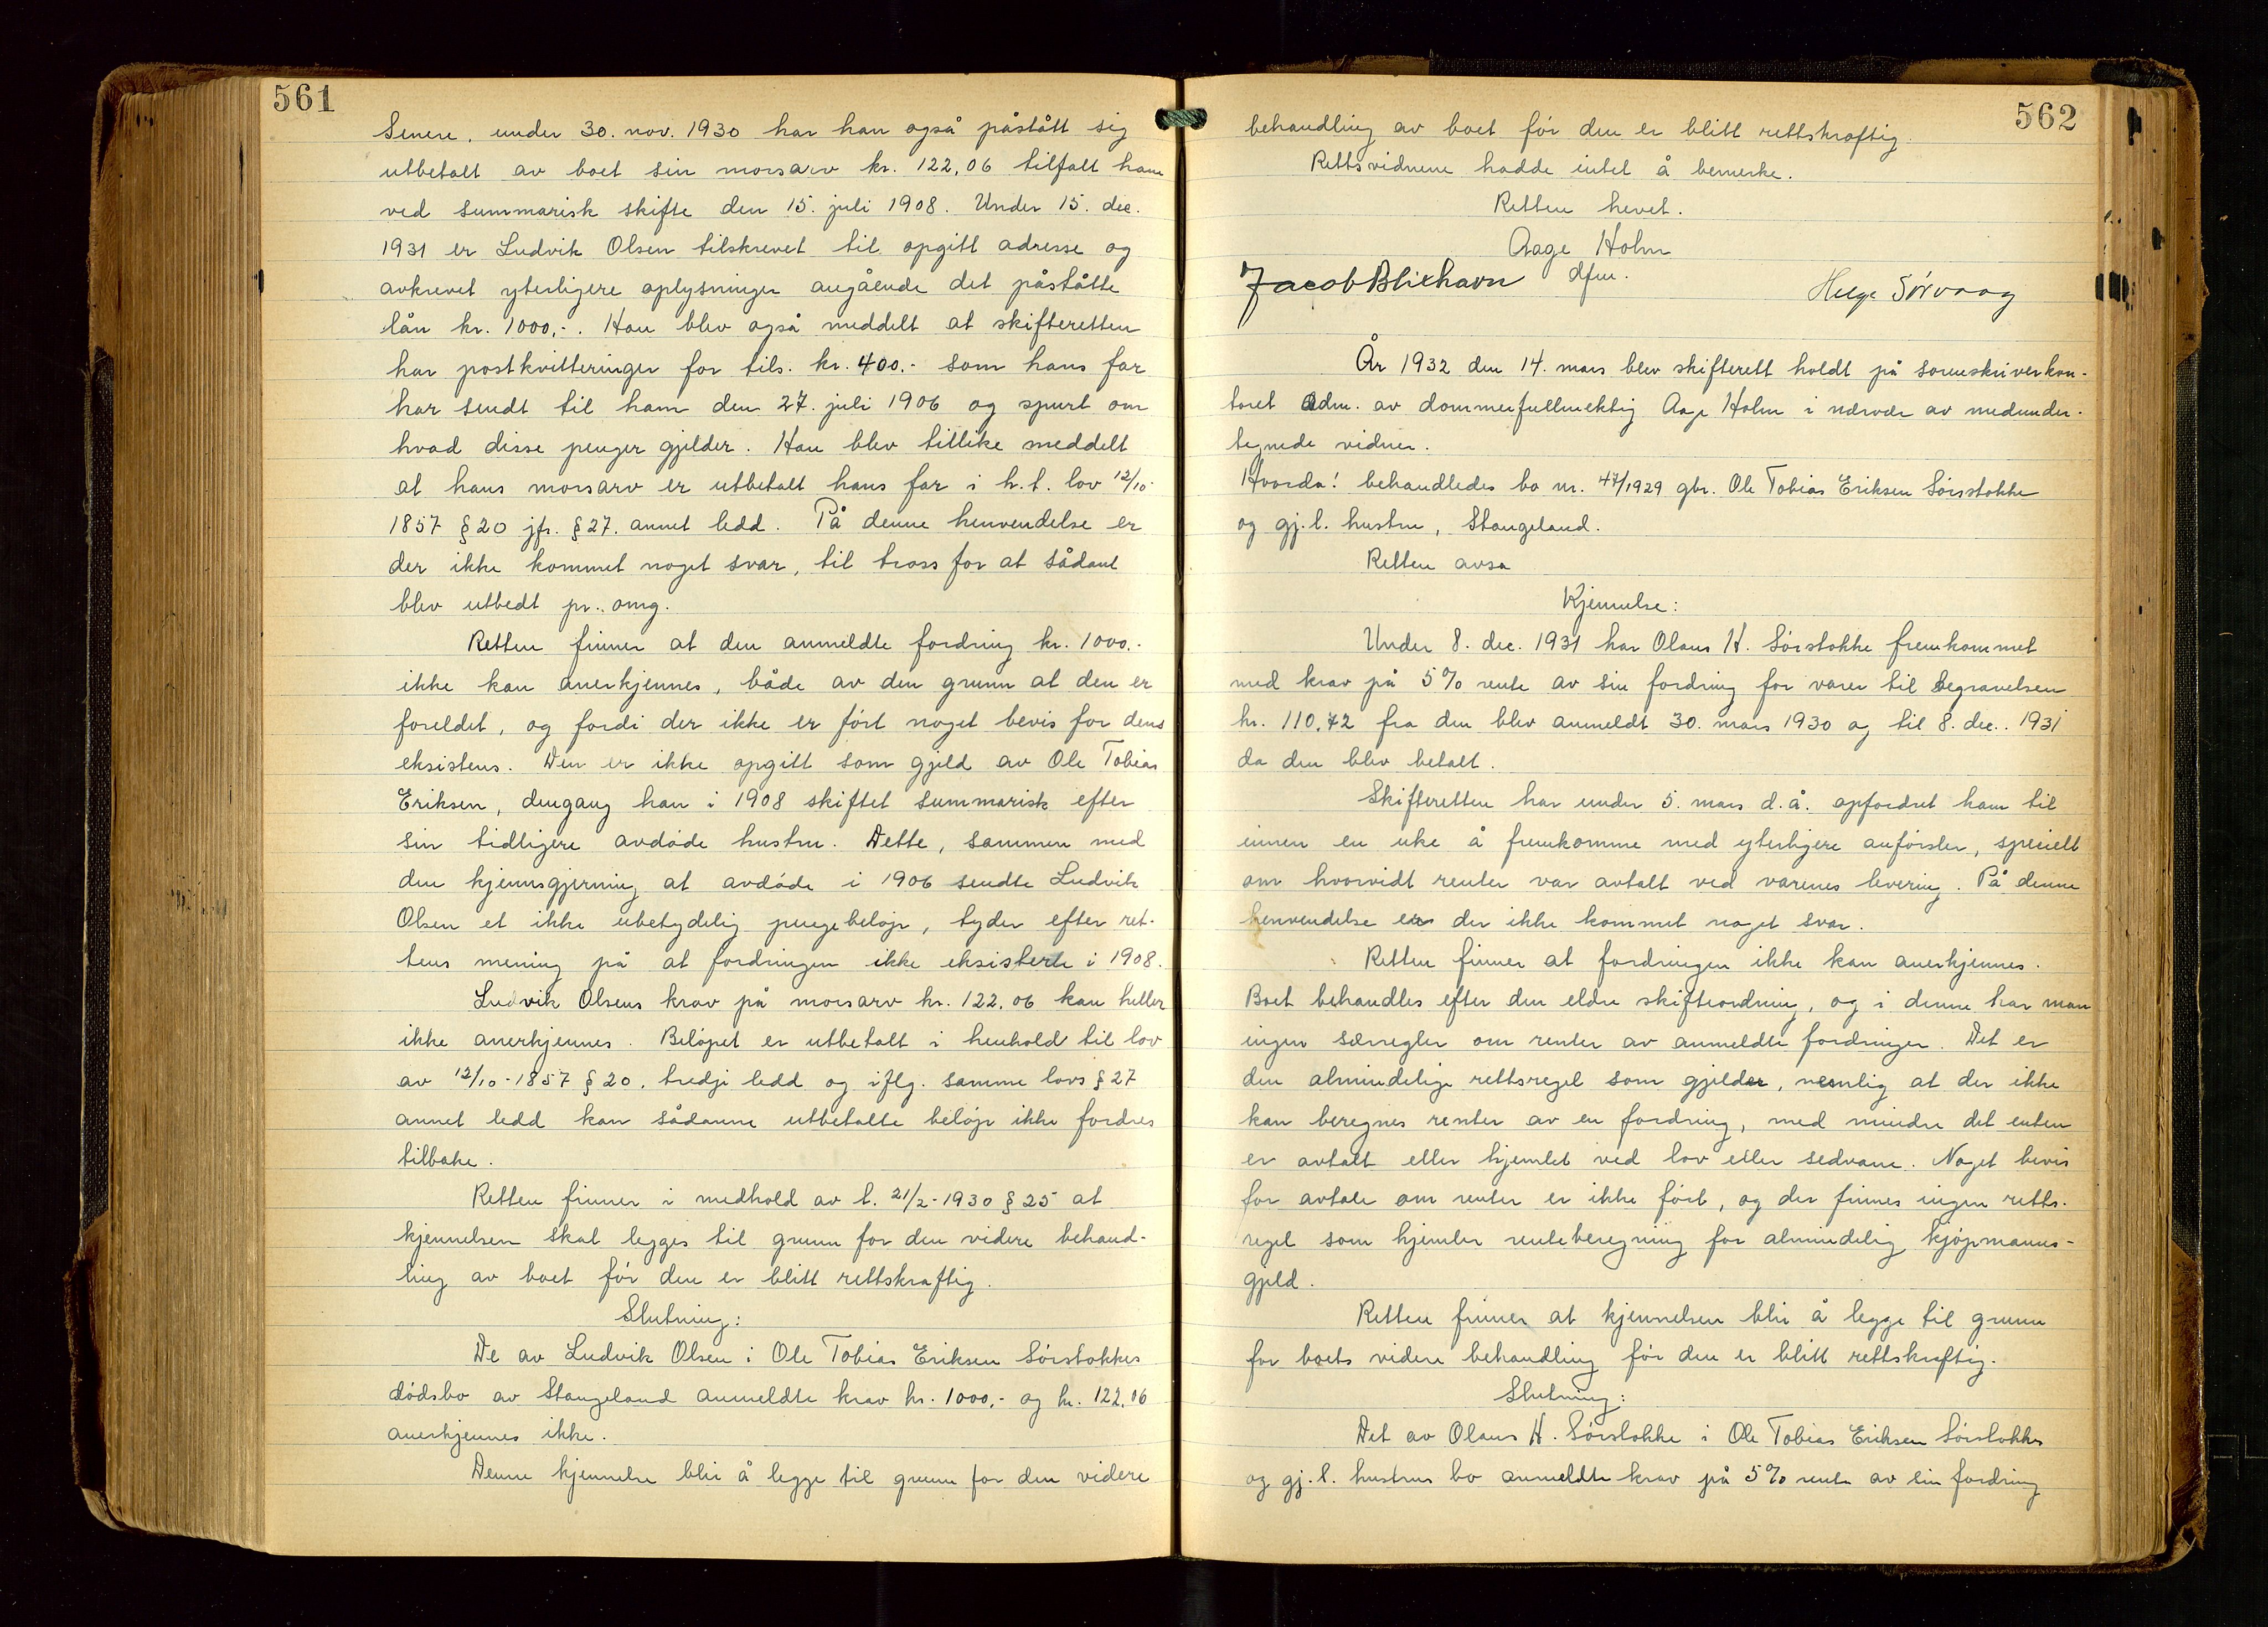 561
Senere, under 30. nov. 1930 har han også påstått sig
utbetalt av boet sin morsarv kr. 122,06 tilfalt ham
ved summarisk skifte den 15. juli 1908. Under 15. dec.
1931 er Ludvik Olsen tilskrevet til opgitt adresse og
avkrevet yterligere oplysninger angående det påståtte
lån kr. 1000,-. Han blev også meddelt at skifteretten
har postkvitteringer for tils. kr. 400.- som hans far
har sendt til ham den 27. juli 1906 og spurt om
hvad disse penger gjelder. Han blev tillike meddelt
at hans morsarv er utbetalt hans far i h.t. lov 12/10-
1857 § 20 jfr. § 27. annet ledd. På denne henvendelse er
der ikke kommet noget svar, til tross for at sådant
blev utbedt pr. omg.
Retten finner at den anmeldte fordring kr. 1000.-
ikke kan anerkjennes, både av den grunn at den er
foreldet, og fordi der ikke er ført noget bevis for dens
eksistens. Den er ikke opgitt som gjeld av Ole Tobias
Eriksen, dengang han i 1908 skiftet summarisk efter
sin tidligere avdøde hustru. Dette, sammen med
den kjennsgjerning at avdøde i 1906 sendte Ludvik
Olsen et ikke ubetydelig pengebeløp, tyder efter ret-
tens mening på at fordringen ikke eksisterte i 1908.
Ludvik Olsens krav på morsarv kr. 122,06 kan heller
ikke anerkjennes. Beløpet er utbetalt i henhold til lov
av 12/10-1857 § 20, tredje ledd og iflg. samme lovs § 27
annet ledd kan sådanne utbetalte beløp ikke fordres
tilbake.
Retten finner i medhold av l. 21/2-1930 § 25 at
kjennelsen skal legges til grunn for den videre behand-
ling av boet før den er blitt rettskraftig.
Slutning:
De av Ludvik Olsen i Ole Tobias Eriksen Sørstokkes
dødsbo av Stangeland anmeldte krav kr. 1000,- og kr. 122,06
anerkjennes ikke.
Denne kjennelse blir å legge til grunn for den videre
562
behandling av boet før den er blitt rettskraftig.
Rettsvidnene hadde intet å bemerke.
Retten hevet.
Aage Holm
dfm.
Jacob Blikhavn
Helge Sørvaag
År 1932 den 14. mars blev skifterett holdt på sorenskriverkon-
toret adm. av dommerfullmektig Aage Holm i nærvær av medunder-
tegnede vidner.
Hvorda! behandledes bo nr. 47/1929 gbr. Ole Tobias Eriksen Sørstokke
og gj.l. hustru, Stangeland.
Retten avsa
Kjennelse:
Under 8. dec. 1931 har Olaus H. Sørstokke fremkommet
med krav på 5% rente av sin fordring for varer til begravelsen
kr. 110.72 fra den blev anmeldt 30. mars 1930 og til 8. dec. 1931
da den blev betalt.
Skifteretten har under 5. mars d.å. opfordret ham til
innen en uke å fremkomme med yterligere anførsler, specielt
om hvorvidt renter var avtalt ved varenes levering. På denne
henvendelse er der ikke kommet noget svar.
Retten finner at fordringen ikke kan anerkjennes.
Boet behandles efter den eldre skifteordning, og i denne har man
ingen særregler om renter av anmeldte fordringer. Det er
den almindelige rettsregel som gjelder, nemlig at der ikke
kan beregnes renter av en fordring, med mindre det enten
er avtalt eller hjemlet ved lov eller sedvane. Noget bevis
for avtale om renter er ikke ført, og der finnes ingen retts-
regel som hjemler renteberegning for almindelig kjøpmanns-
gjeld.
Retten finner at kjennelsen blir å legge til grunn
for boets videre behandling før den er blitt rettskraftig.
Slutning:
Det av Olaus H. Sørstokke i Ole Tobias Eriksen Sørstokkes
og gj.l. hustrus bo anmeldte krav på 5% rente av sin fordring